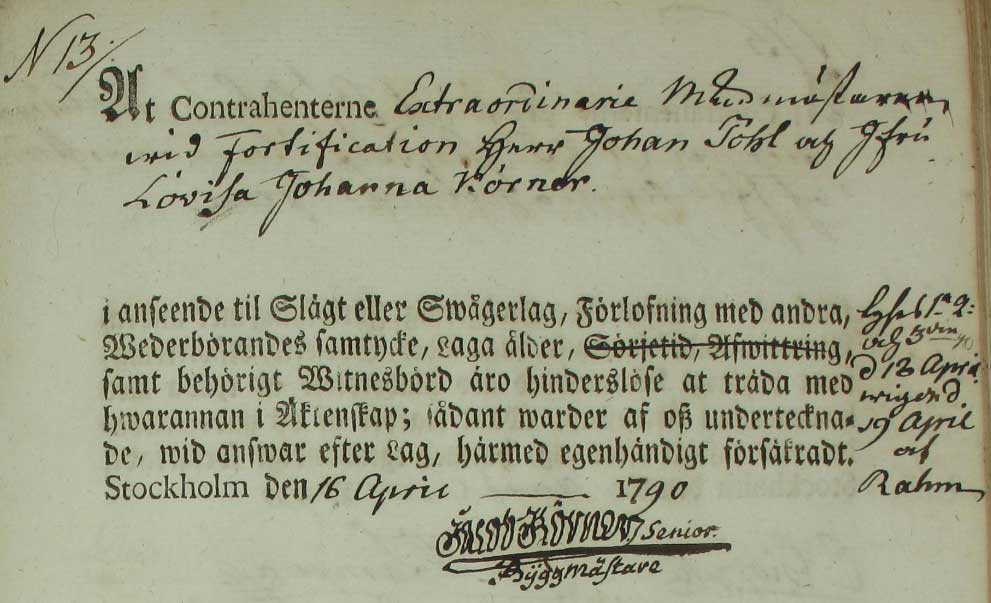 N 13/.
At Contrahenterne Extraordinarie Murmästaren
wid Fortification Herr Johan Töhl och Jfru
Lovisa Johanna Körner.
i anseende til Slägt eller Swågerlag, Förlofning med andra,
Wederbörandes samtycke, Laga ålder, Sörjetid, Afwittring,
samt behörigt Witnesbörd äro hinderslöse at träda med
hwarannan i Äktenskap; sådant warder af oß underteckna-
de, wid answar efter Lag, härmed egenhändigt försäkradt.
Stockholm den 16 April 1790
Jacob Körner Senior.
Byggmästare
Lyses 1a 2:
och 3
d 18 April
wigend
19 April
af
Rahm